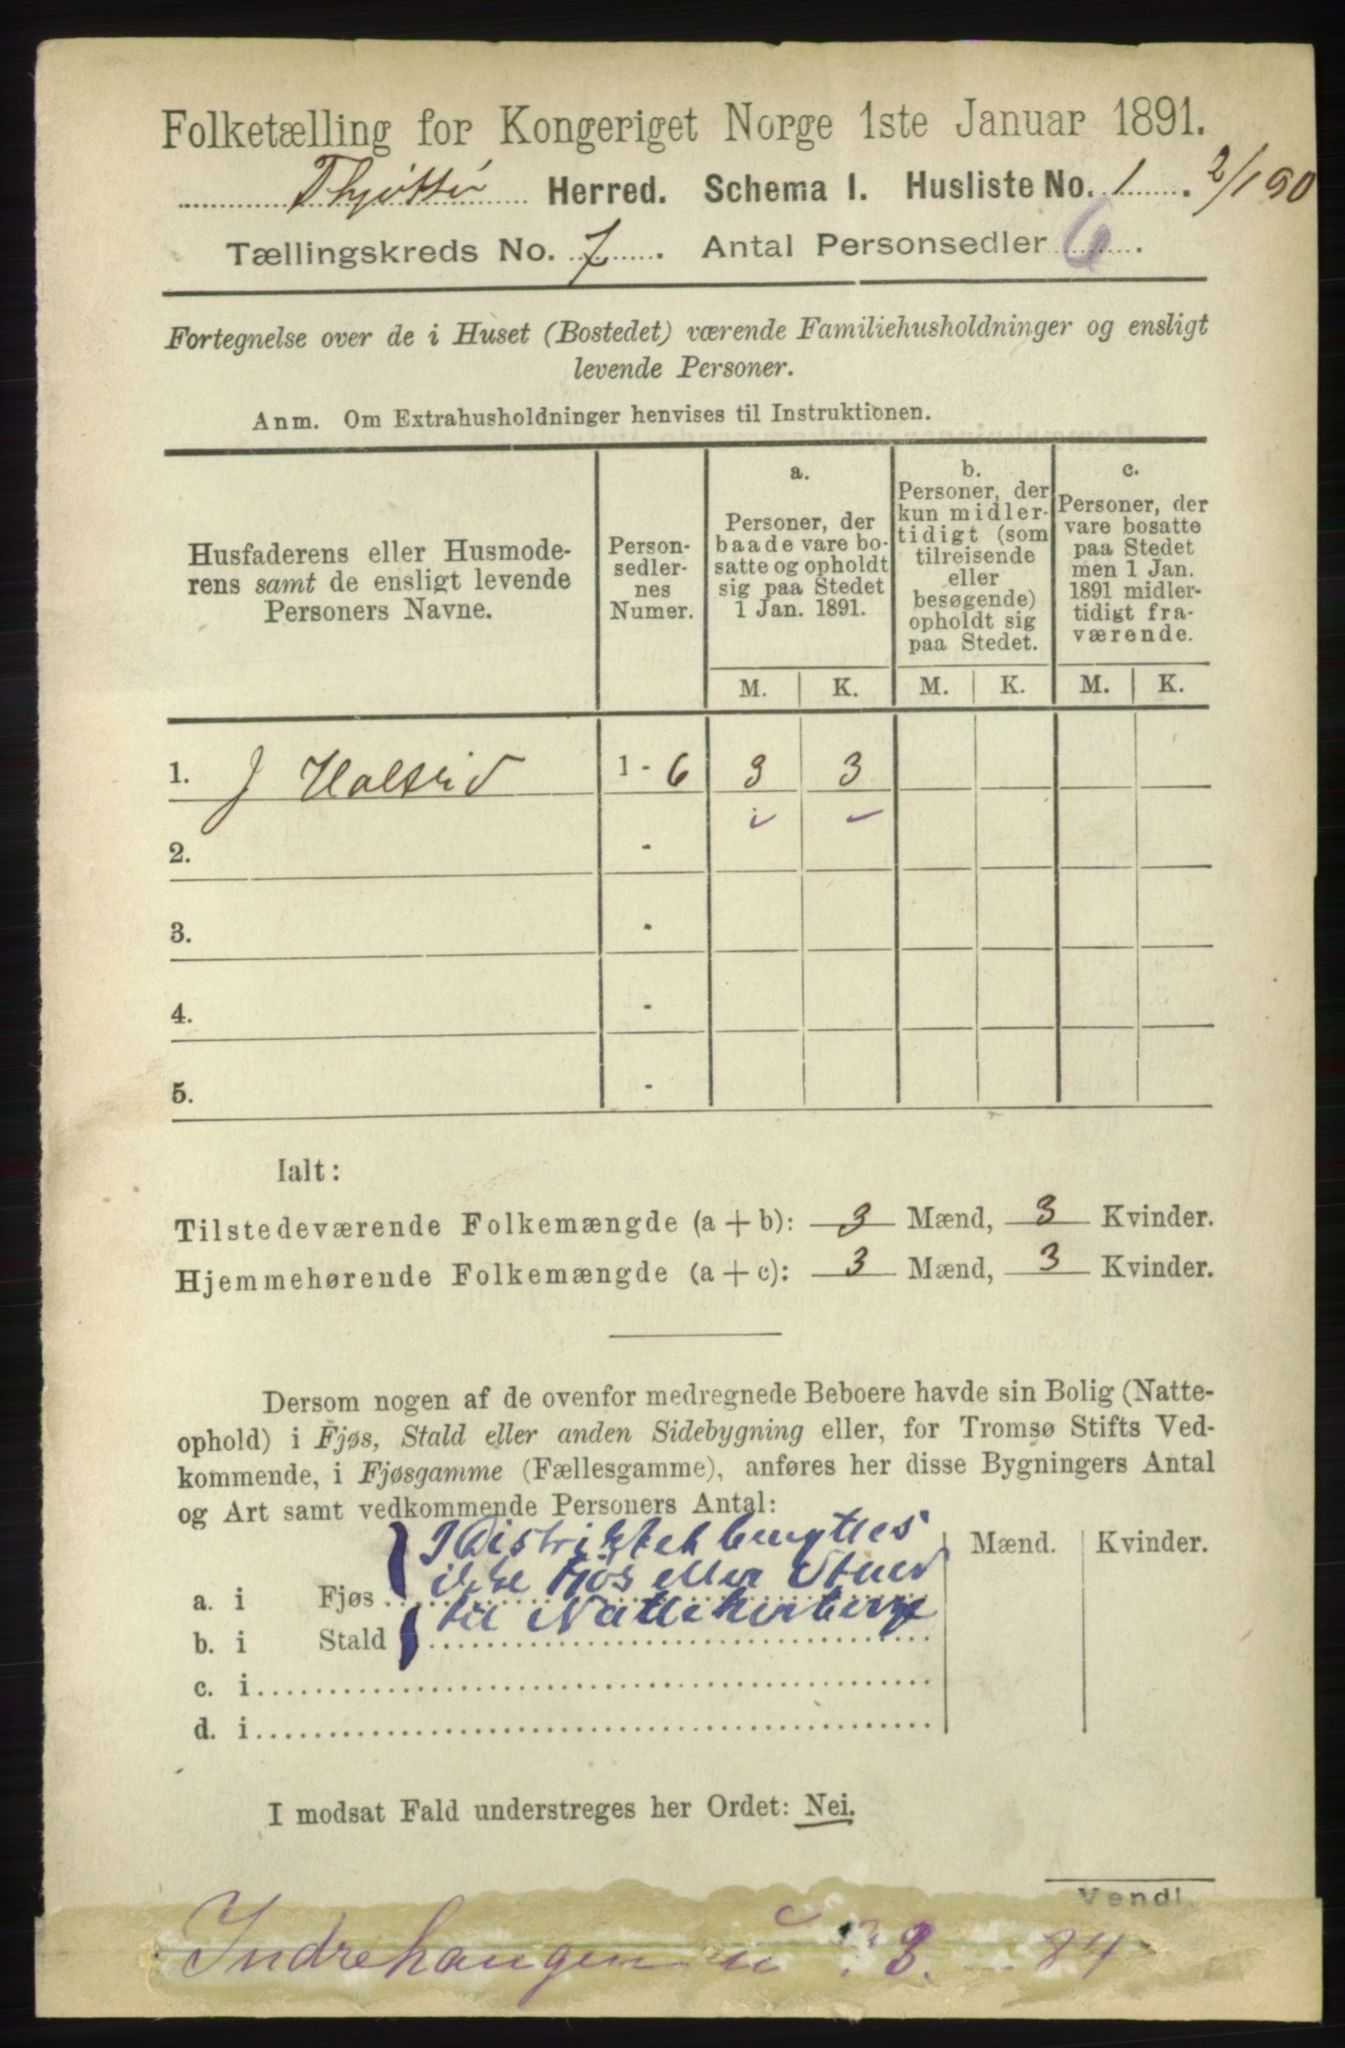 Folketælling for Kongeriget Norge 1ste Januar 1891.
Thjøttø Herred. Schema I. Husliste No. 1. 2/1 90
Tællingskreds No. 7. Antal Personsedler 6.
Fortegnelse over de i Huset (Bostedet) værende Familiehusholdninger og ensligt
levende Personer.
Anm. Om Extrahusholdninger henvises til Instruktionen.
Husfaderens eller Husmode-
rens samt de ensligt levende
Personers Navne.
Person-
sedler-
nes
Numer.
a.
Personer, der
baade vare bo-
satte og opholdt
sig paa Stedet
1 Jan. 1891.
b.
Personer, der
kun midler-
tidigt (som
tilreisende
eller
besøgende)
opholdt sig
paa Stedet.
c.
Personer, der
vare bosatte
paa Stedet
men 1 Jan.
1891 midler-
tidigt fra-
værende.
M. K. M. K. M. K.
1. J 1 - 6 3 3
2. -
3. -
4. -
5. -
Ialt:
Tilstedeværende Folkemængde (a + b): 3 Mænd, 3 Kvinder.
Hjemmehørende Folkemængde (a + c): 3 Mænd, 3 Kvinder.
Dersom nogen af de ovenfor medregnede Beboere havde sin Bolig (Natte-
ophold) i Fjøs, Stald eller anden Sidebygning eller, for Tromsø Stifts Ved-
kommende, i Fjøsgamme (Fællesgamme), anføres her disse Bygningers Antal
og Art samt vedkommende Personers Antal:
Mænd. Kvinder.
I Distriktet benyttes
ikke Fjøs eller
til
a. i Fjøs
b. i Stald
c. i
d. i
I modsat Fald understreges her Ordet: Nei.
Vend!
Indrehaugen u 3. 84